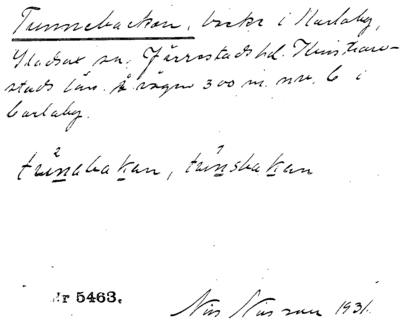 Tunnebacken, backe i Karlaby,
Gladsax sn. Järrestads hd. Kristian-
stads län. Å vägen 300 m. nv. C i
Carlaby.
trånabakan, trånsbakan
Nr 5463.
Nils Nilsson 1931.